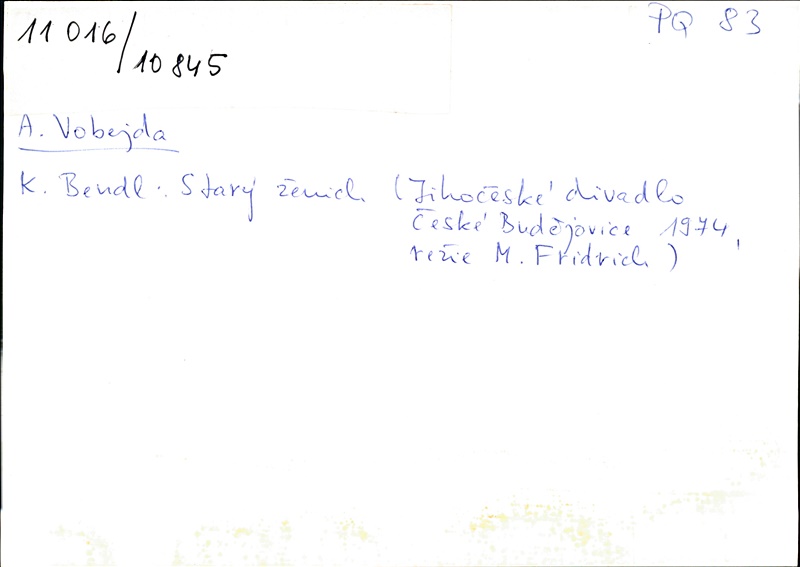 11 016/10 845
PQ 83
A. Vobejda
K. Bendl: Starý ženich (Jihočeské divadlo
České Budějovice 1974,
režie M. Fridrich)